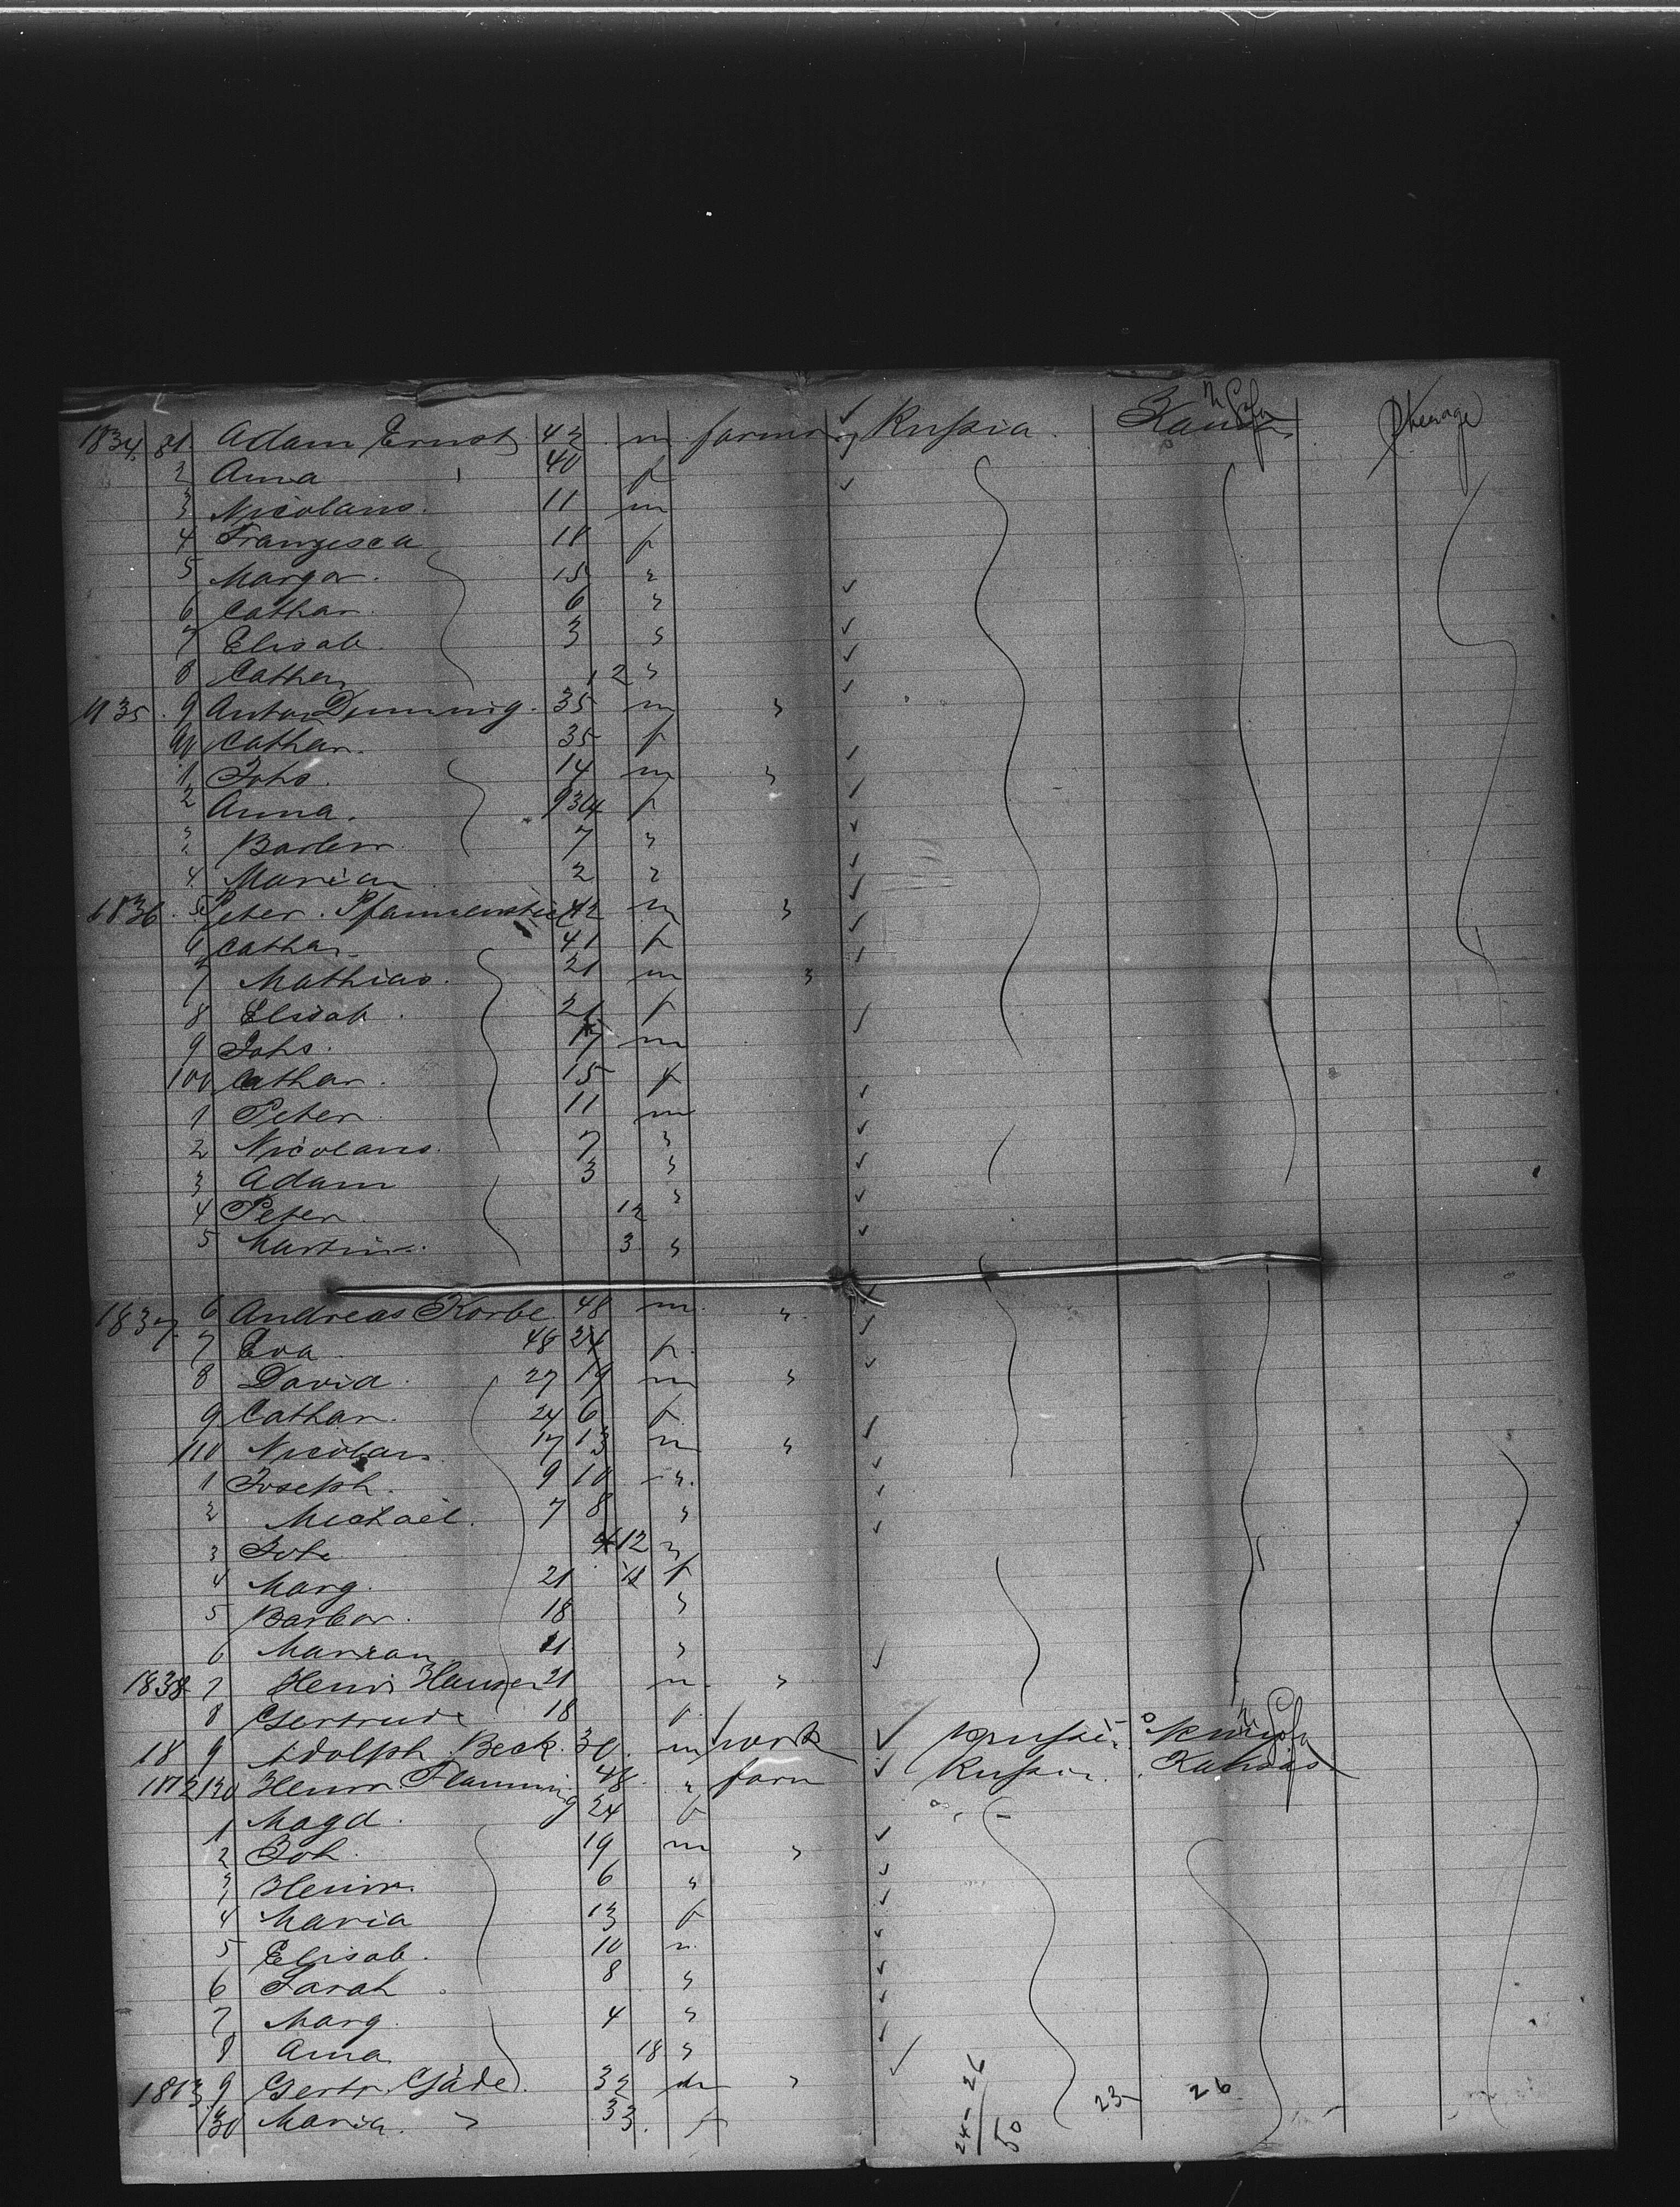 1834. 81 Adam Ernst 42 m farmer Russia Kansas Steerage
2 Anna 40 f
3 Nicolaus. 11 m
4 Franzisca 18 f
5 Margar. 15 "
6 Cathar. 6 "
7 Elisab. 3 "
8 Cathar 12 "
1835. 9 Anton Denning. 35 m "
90 Cathar. 35 f
1 Johs. 14 m "
2 Anna. f
3 Barbar 7 "
4 Marian 2 "
1836. 5 Peter Pfannenstiel 42 m "
6 Cathar. 41 f
7 Mathias. 21 m "
8 Elisab. 21 f
9 Johs. 17 m
100 Cathar. 15 f
1 Peter 11 m
2 Nicolaus. 7 "
3 Adam 3 "
4 Peter 12 "
5 Martin. 3 "
1837. 6 Andreas Korbe 48 m. "
7 Eva 48 24 f.
8 David. 27 19 m "
9 Cathar. 24 6 f.
110 Nicolaus 17 13 m "
1 Joseph. 9 10 ".
2 Michael. 7 8 "
3 Joh. 4 12 "
4 Marg. 21 f
5 Barbar. 18 "
6 Marian 21 "
1838 7 Henr. Hauser 21 m. "
8 Gertrude 18 f.
18 9 Adolph Beck. 30. m work Russia
1812 120 Henr. Flamming 48. " farm Russia. Kansas
1 Magd. 24 f
2 Joh. 19 m "
3 Heinr. 6 "
4 Maria 13 f
5 Elisab. 10 "
6 Sarah 8 "
7 Marg. 4 "
8 Anna 18 "
1813 9 Gertr. Gäde. 32 m "
130 Maria. " 33. f
24 - 26 50 23 26